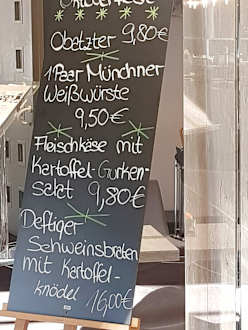 Oktoberfest
Obatzter 9,80€
1 Paar Münchner
Weißwürste
9,50€
Fleischkäse mit
Kartoffel-Gurken-
salat 9,80€
Deftiger
Schweinsbraten
mit Kartoffel-
knödel 16,00€